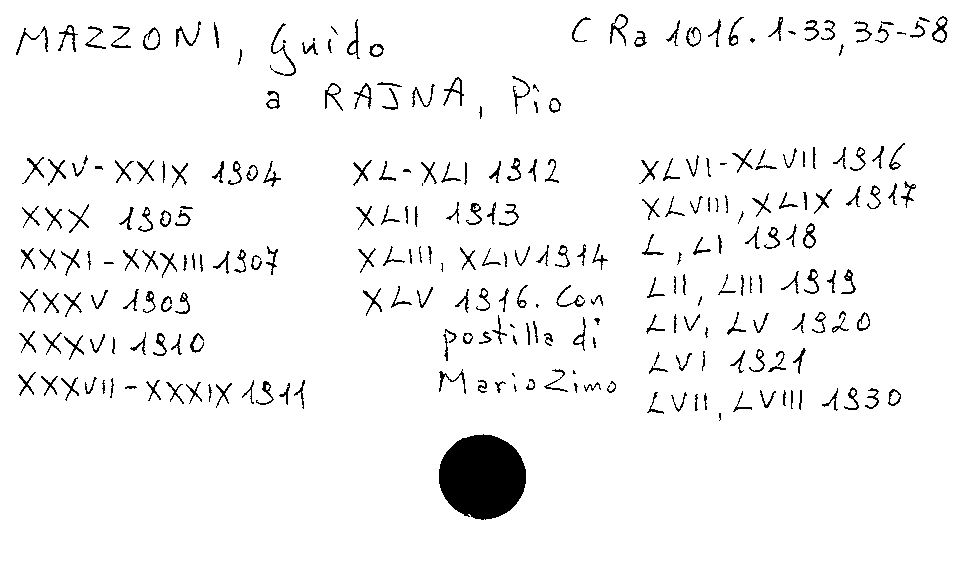 MAZZONI, Guido
C Ra 1016. 1-33, 35-58
a RAJNA, Pio
XXV-XXIX 1904
XXX 1905
XXXI-XXXIII 1907
XXXV 1909
XXXVI 1910
XXXVII-XXXIX 1911
XL-XLI 1912
XLII 1913
XLIII, XLIV 1914
XLV 1916. Con
postilla di
Mario Zimo
XLVI-XLVII 1916
XLVIII, XLIX 1917
L, LI 1918
LII, LIII 1919
LIV, LV 1920
LVI 1921
LVII, LVIII 1930